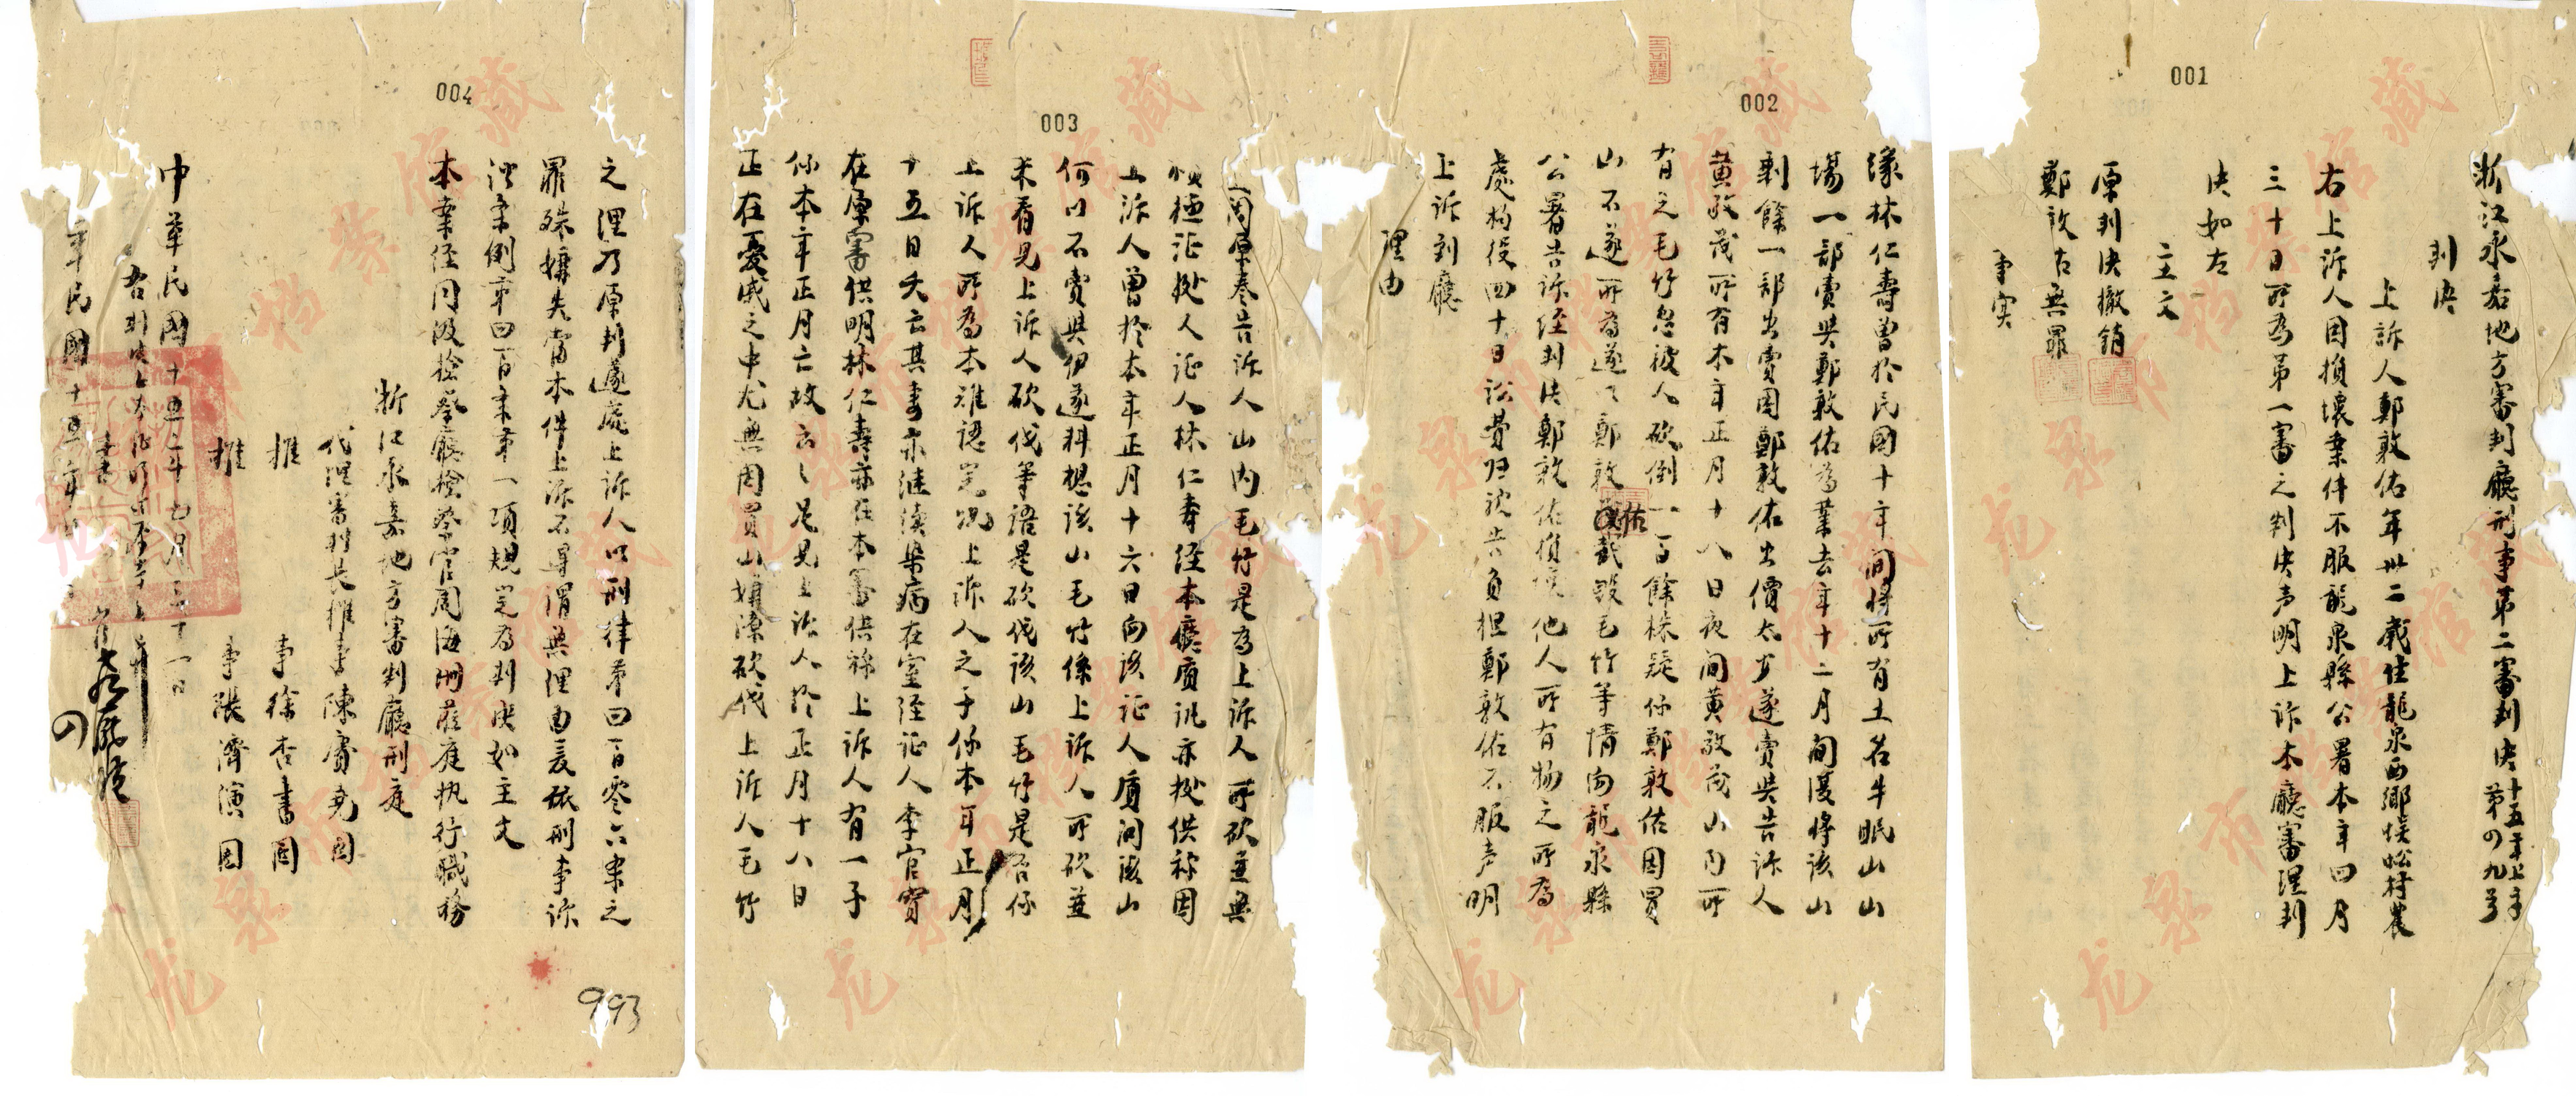 001
浙江永嘉地方審判廳刑事第二審判決十五年上字第四九号
判決
上訴人鄭敦佑年卅二歲住龍泉西鄉候㟲村農
右上訴人因損壞案件不服龍泉縣公署本年四月
三十日所為第一審之判決声明上訴本廳審理判
決如左
主文
原判決撤銷
鄭敦右無罪
事实
002
緣林仁壽曾於民國十年间將所有土名牛眠山山
場一部賣與鄭敦佑為業去年十二月间復將該山
剩餘一部出賣因鄭敦佑出價太少遂賣與告訴人
黃敬茂所有本年正月十八日夜间黃敬茂山内所
有之毛竹忽被人砍倒一百餘株疑係鄭敦佑因買
山不遂所為遂以鄭敦佑截毀毛竹等情向龍泉縣
公署告訴經判決鄭敦佑損壞他人所有物之所為
處拘役四十日訟費归被告負担鄭敦佑不服声明
上訴到廳
理由
003
查閱原卷告訴人山内毛竹是否上訴人所砍並無
積極証據人証人林仁壽經本廳質訊亦據供称因
上訴人曾於本年正月十六日向該証人質问該山
何以不賣與伊遂料想該山毛竹係上訴人所砍並
未看見上訴人砍伐等語是砍伐該山毛竹是否係
上訴人所為本难認定况上訴人之子係本年正月
十五日夭亡其妻亦继续染病在室經証人李官寶
在原審供明林仁壽亦在本審供称上訴人有一子
係本年正月亡故云云足見上訴人於正月十八日
正在憂戚之中尤無因買山嫌隙砍伐上訴人毛竹
004
之理乃原判遽處上訴人以刑律第四百零六条之
罪殊嫌失當本件上訴不得謂無理由爰依刑事訴
訟条例第四百条第一項規定為判決如主文
本案經同級检察廳检察官周海珊蒞庭执行職務
浙江永嘉地方審判廳刑庭
代理審判長推事陳賡堯因
推事徐杏書因
推事張濟演因
中華民國十五年七月三十一日
右判決正本証明與原本無異
書
華民國十五年
993